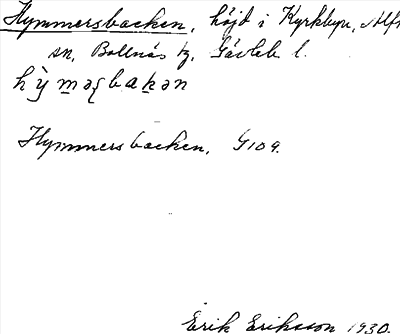 Hymmersbacken, höjd i Kyrkbyn, Alft
sn, Bollnäs tg, Gävleb l.
hỳ̖mərbakən
Hymmersbacken, G 109.
Erik Eriksson 1930.